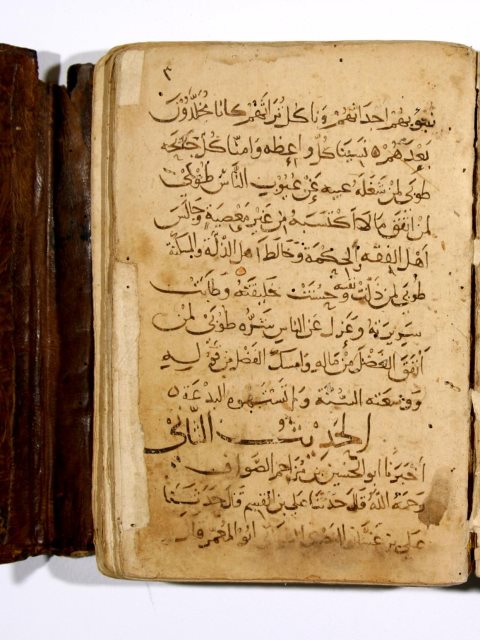 نبوئهم اجداثهم وناكل تراثهم كانا مخلدون
بعدهم نسينا كل واعظه وامنا كل جائحه
طوبى لمن شغله عيبه عن عيوب الناس طوبى
لمن انفق مالا اكتسبه من غير معصية وجالس
اهل الفقه والحكمة وخالط اهل الذلة والمسكنة
طوبى لمن ذلت نفسه وحسنت خليقته وطابت
سريرته وعزل عن الناس شره طوبى لمن
انفق الفضل من ماله وامسك الفضل من قوله
ووسعته السنة ولم تستهوه البدعة
الحديث الثاني
اخبرنا ابو الحسين بن مزاحم الصواف
رحمه الله قال حدثنا علي بن القسم قال حدثنا
علي بن البصري ابو المعمر